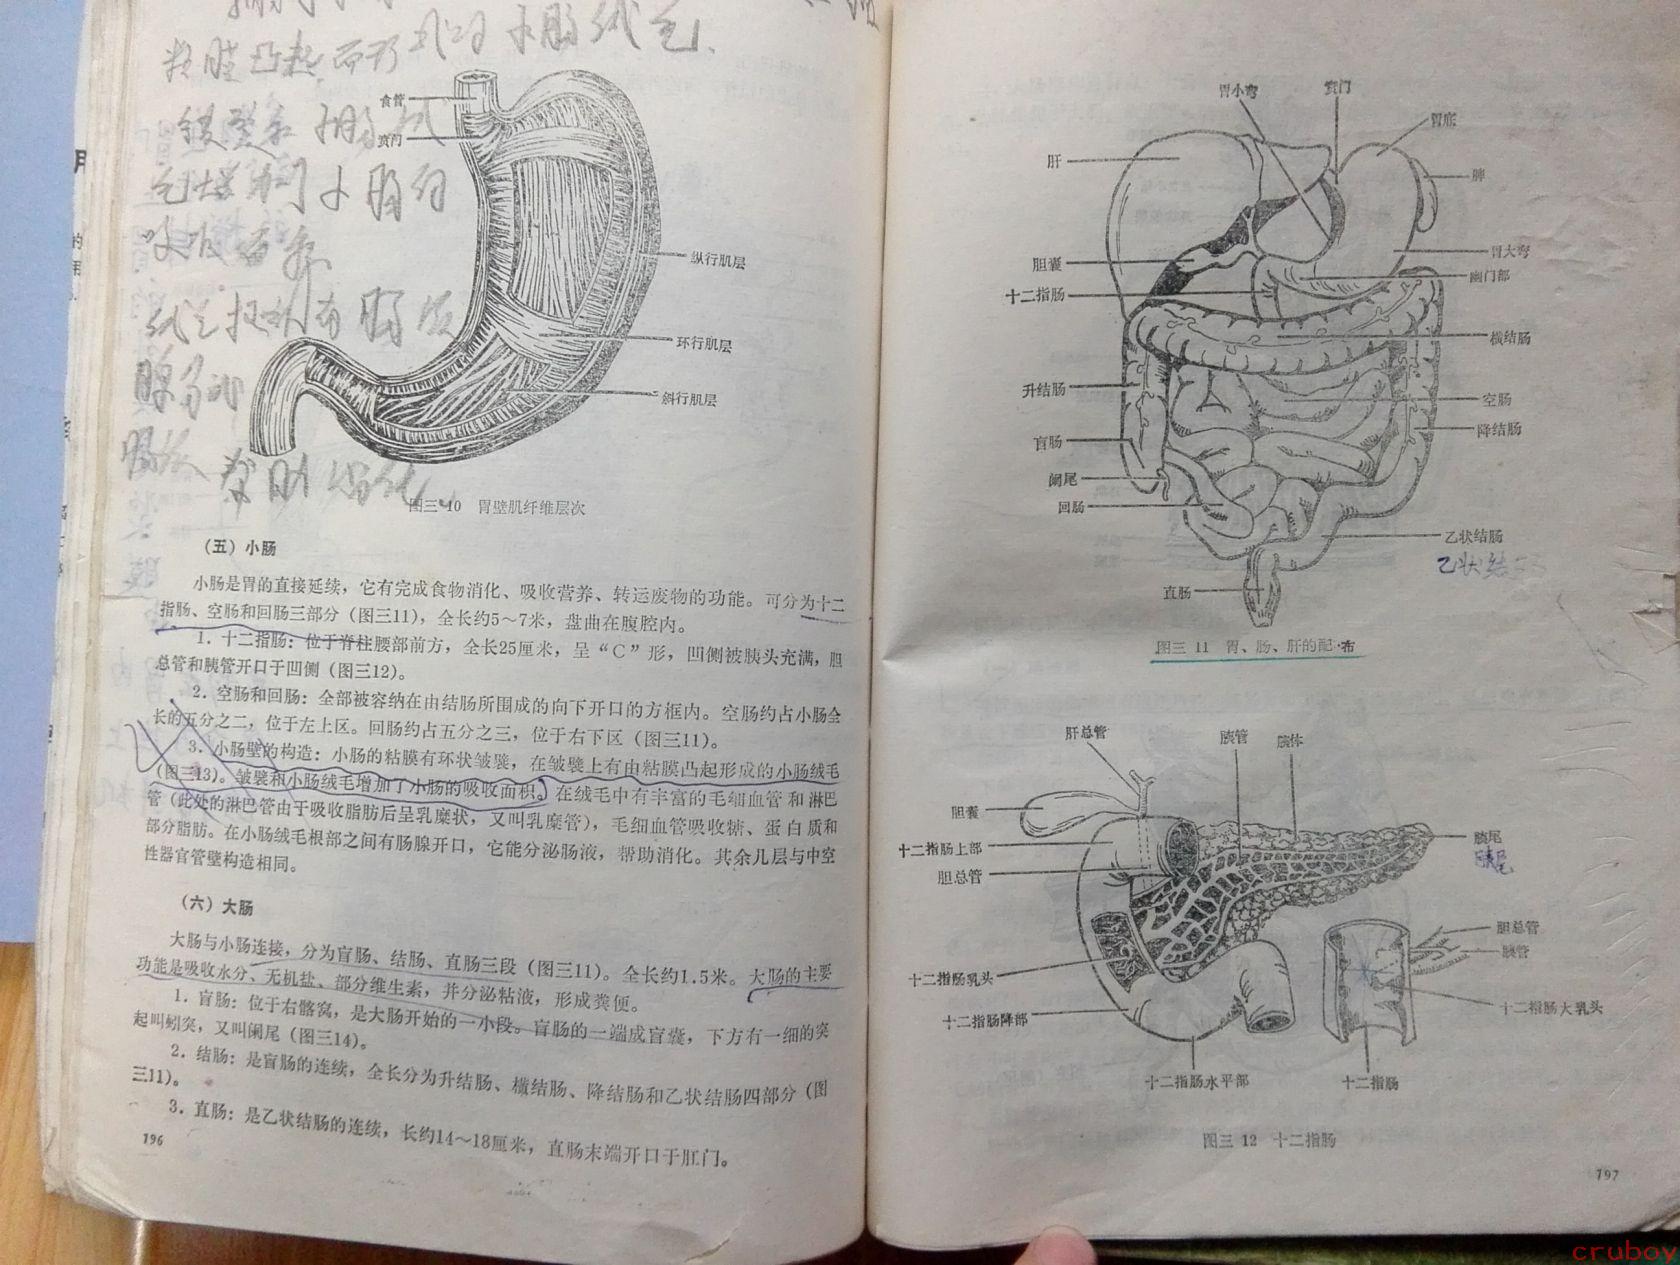 粘膜凸起而形
食管
贲门
纵行肌层
环行肌层
斜行肌层
图三 10 胃壁肌纤维层次
（五）小肠
小肠是胃的直接延续，它有完成食物消化、吸收营养、转运废物的功能。可分为十二
指肠、空肠和回肠三部分（图三11），全长约5～7米，盘曲在腹腔内。
1．十二指肠：位于脊柱腰部前方，全长25厘米，呈“C”形，凹侧被胰头充满，胆
总管和胰管开口于凹侧（图三12）。
2．空肠和回肠：全部被容纳在由结肠所围成的向下开口的方框内。空肠约占小肠全
长的五分之二，位于左上区。回肠约占五分之三，位于右下区（图三11）。
3．小肠壁的构造：小肠的粘膜有环状皱襞，在皱襞上有由粘膜凸起形成的小肠绒毛
（图三13）。皱襞和小肠绒毛增加了小肠的吸收面积。在绒毛中有丰富的毛细血管和淋巴
管（此处的淋巴管由于吸收脂肪后呈乳糜状，又叫乳糜管），毛细血管吸收糖、蛋白质和
部分脂肪。在小肠绒毛根部之间有肠腺开口，它能分泌肠液，帮助消化。其余几层与中空
性器官管壁构造相同。
（六）大肠
大肠与小肠连接，分为盲肠、结肠、直肠三段（图三11）。全长约1.5米。大肠的主要
功能是吸收水分、无机盐、部分维生素，并分泌粘液，形成粪便。
1．盲肠：位于右髂窝，是大肠开始的一小段。盲肠的一端成盲囊，下方有一细的突
起叫蚓突，又叫阑尾（图三14）。
2．结肠：是盲肠的连续，全长分为升结肠、横结肠、降结肠和乙状结肠四部分（图
三11）。
3．直肠：是乙状结肠的连续，长约14～18厘米，直肠末端开口于肛门。
196
胃小弯
贲门
胃底
肝
脾
胃大弯
胆囊
幽门部
十二指肠
横结肠
升结肠
空肠
降结肠
盲肠
阑尾
回肠
乙状结肠
乙状结
直肠
图三 11 胃、肠、肝的配布
肝总管
胰管
胰体
胆囊
胰尾
胰尾
十二指肠上部
胆总管
胆总管
胰管
十二指肠乳头
十二指肠大乳头
十二指肠降部
十二指肠水平部
十二指肠
图三 12 十二指肠
197
cruboy